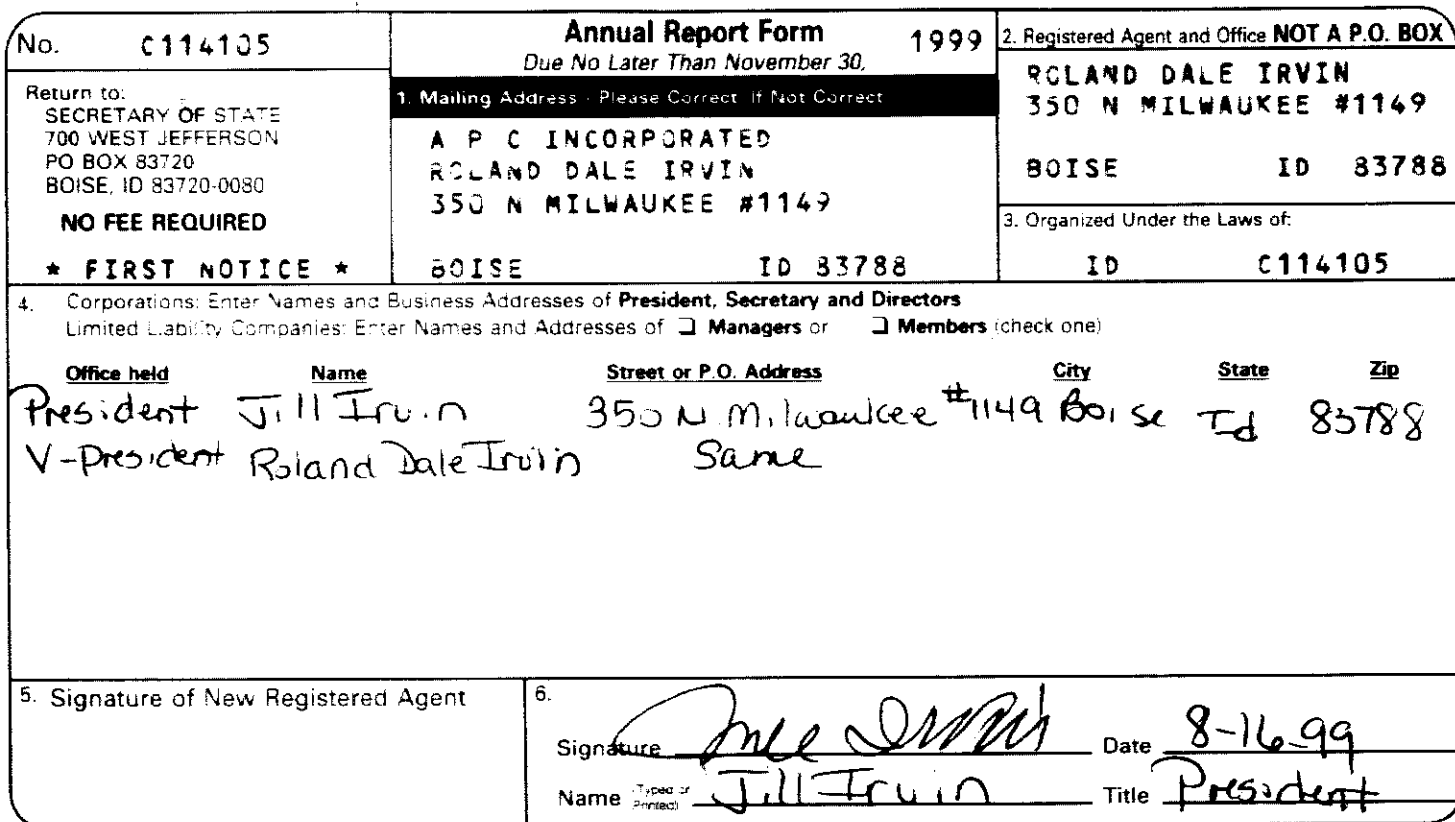 No. C114105
Annual Report Form 1999
Due No Later Than November 30,
Return to:
SECRETARY OF STATE
700 WEST JEFFERSON
PO BOX 83720
BOISE, ID 83720-0080
NO FEE REQUIRED
* FIRST NOTICE *
1. Mailing Address - Please Correct If Not Correct
A P C INCORPORATED
ROLAND DALE IRVIN
350 N MILWAUKEE #1149
BOISE ID 83788
2. Registered Agent and Office NOT A P.O. BOX
ROLAND DALE IRVIN
350 N MILWAUKEE #1149
BOISE ID 83788
3. Organized Under the Laws of:
ID C114105
4. Corporations: Enter Names and Business Addresses of President, Secretary and Directors
Limited Liability Companies: Enter Names and Addresses of ❑ Managers or ❑ Members (check one)
Office held Name Street or P.O. Address City State Zip
President Jill Irvin 350 N Milwaukee #1149 Boise Id 83788
V-President Roland Dale Irvin Same
5. Signature of New Registered Agent
6.
Signature Jill Irvin Date 8-16-99
Name (Typed or Printed) Jill Irvin Title President